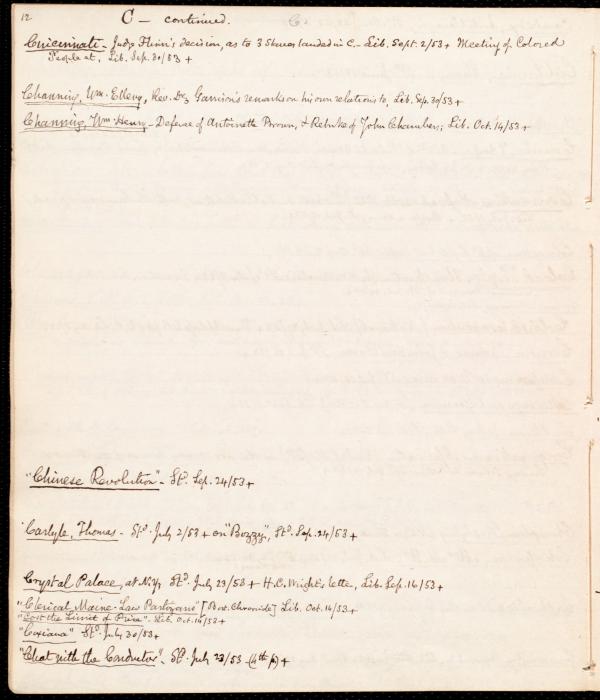 12 C - continued.
Cincinnati - Judge Flinn's decision, as to 3 Slaves landed in C. - Lib. Sept. 2/53 + Meeting of Colored
People at, Lib. Sep. 30/53 +
Channing, Wm. Ellery, Rev. Dr., Garrison's remarks on his own relations to, Lib. Sep. 30/53 +
Channing, Wm Henry - Defense of Antoinette Brown, & Rebuke of John Chambers; Lib. Oct. 14/53 +
"Chinese Revolution" - Std. Sep. 24/53 +
Carlyle, Thomas - Std. July 2/53 + on "Bozzy", Std. Sep. 24/53 +
Crystal Palace, at N.Y. Std. July 23/53 + H.C. Wright's letter, Lib. Sep. 16/53 +
"Clerical Maine-Law Partizans" [Bost. Chronicle] Lib. Oct. 14/53 +
"Cost the Limit of Price" - Lib. Oct. 14/53 +
"Coxiana" Std. July 30/53 +
"Chat with the Conductor" - Std. July 23/53 (4th p) +